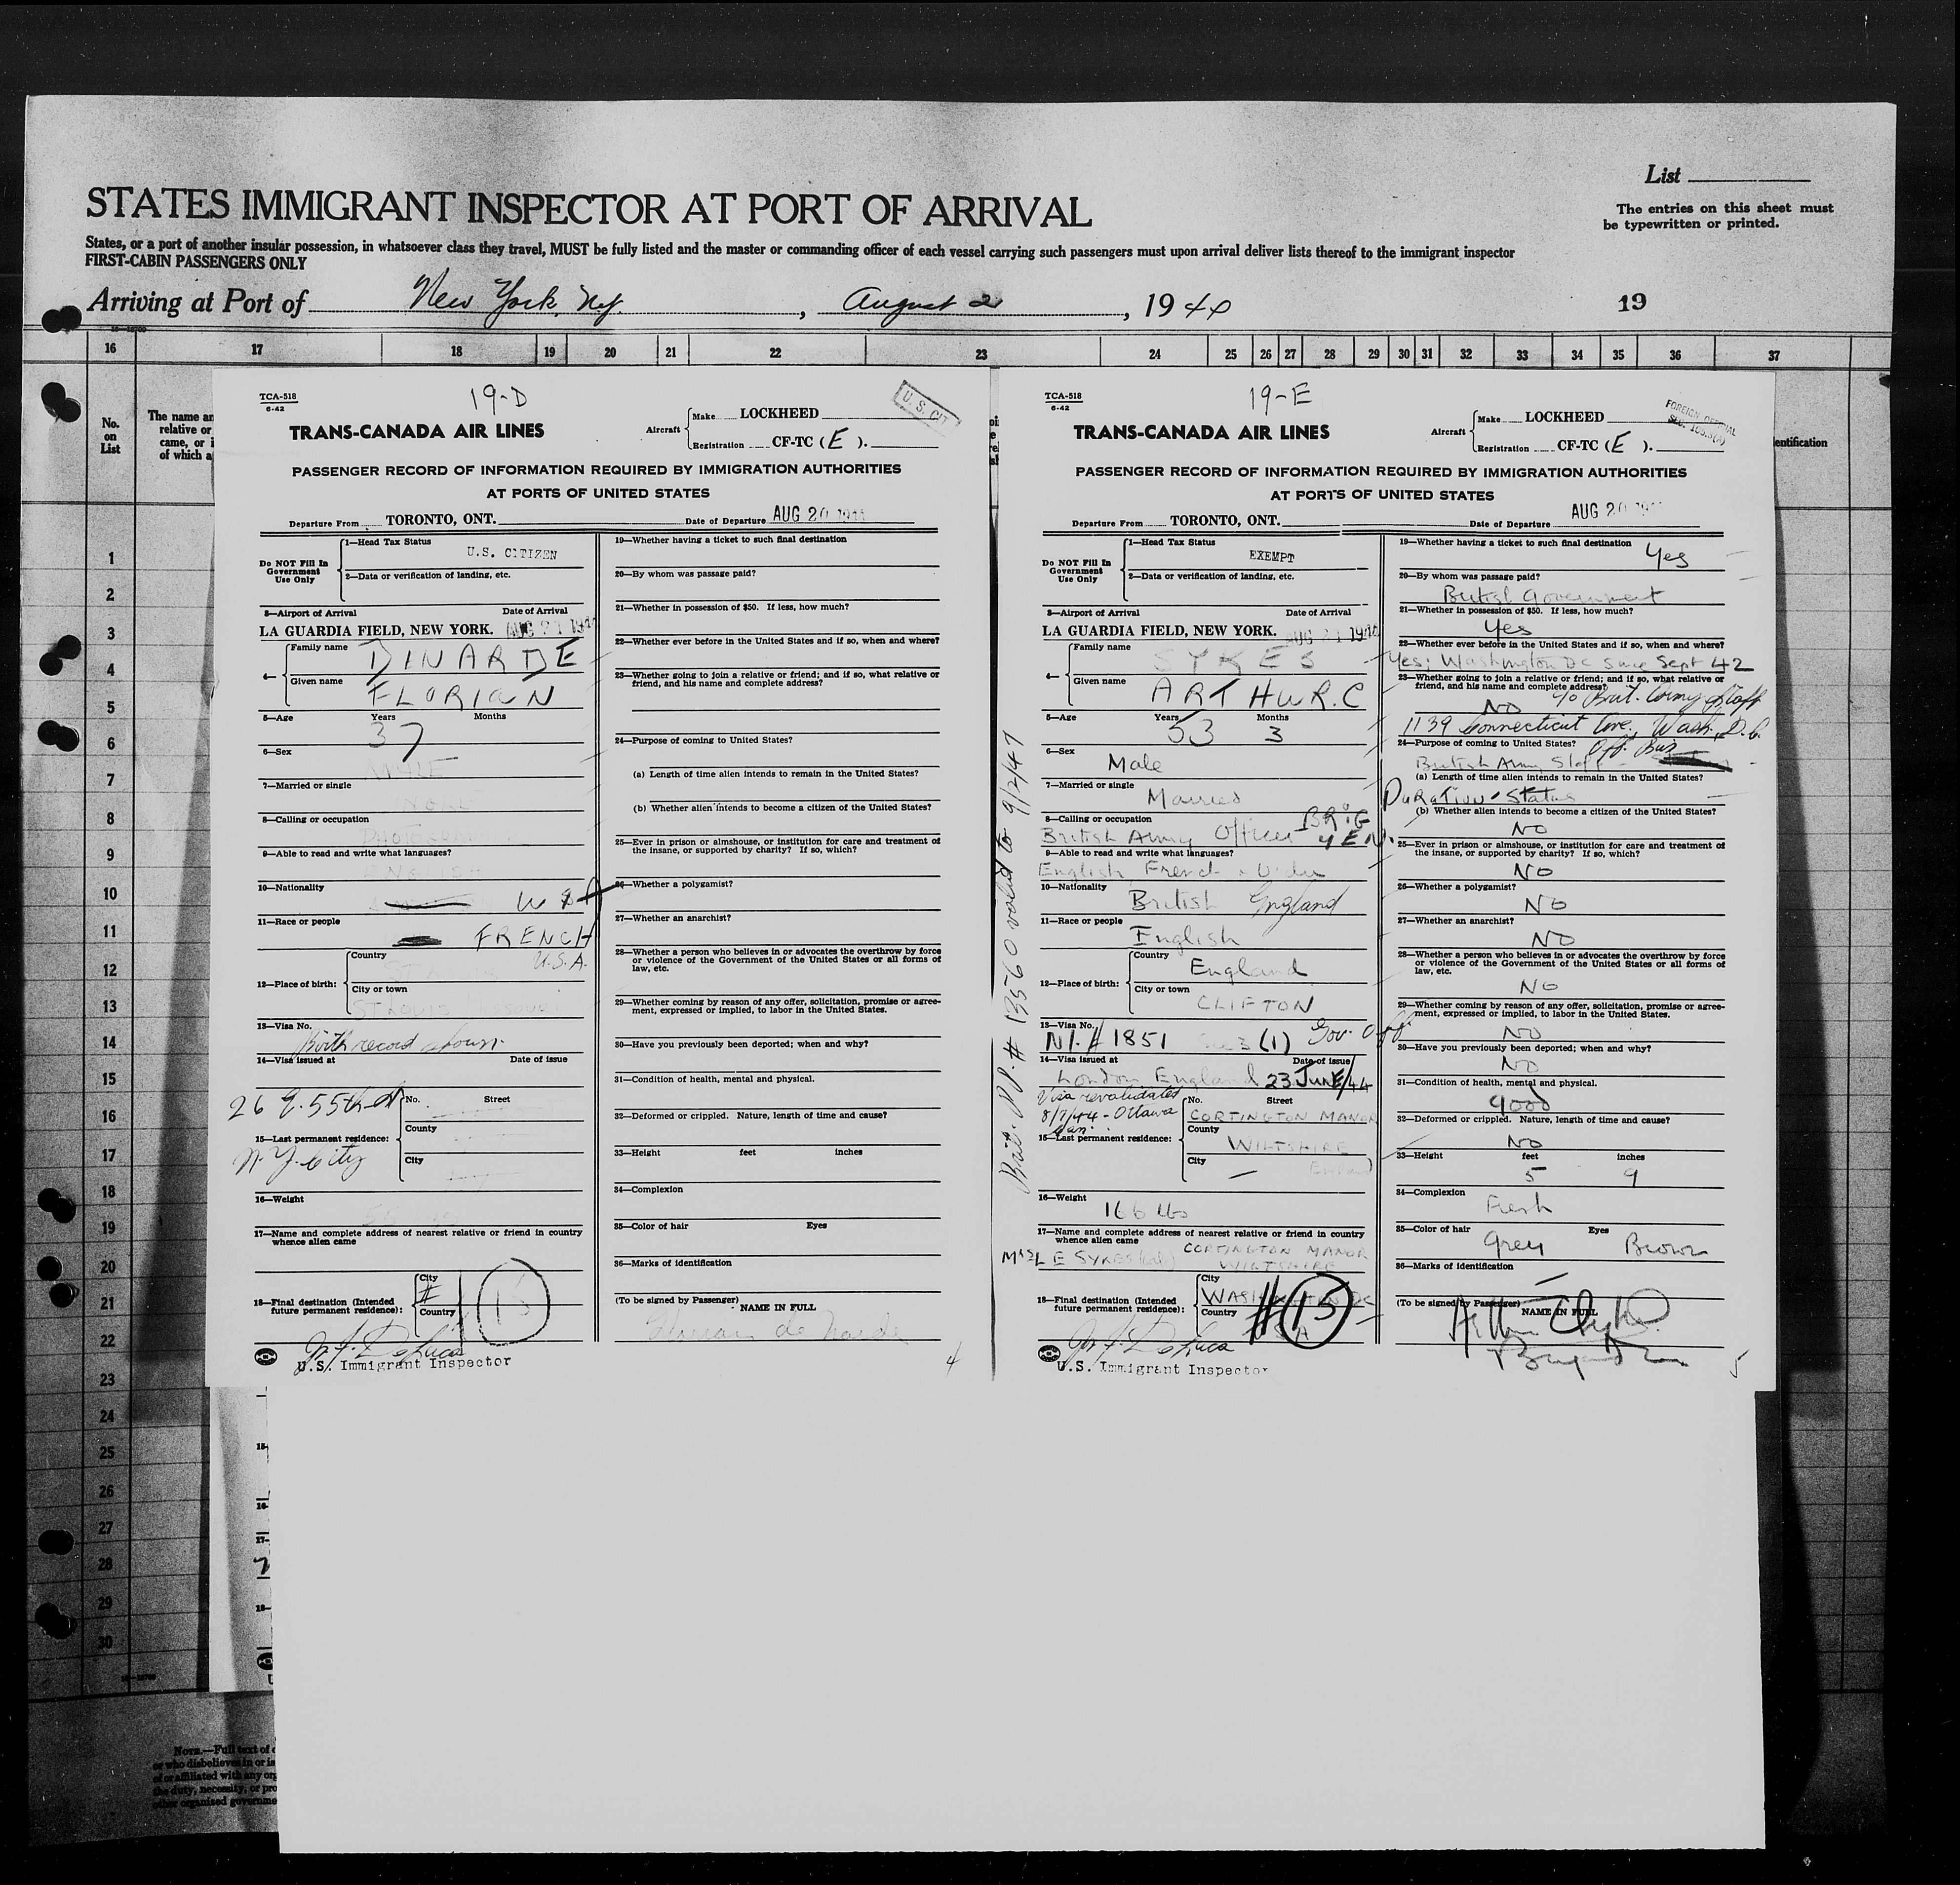 List
The entries on this sheet must
be typewritten or printed.
STATES IMMIGRANT INSPECTOR AT PORT OF ARRIVAL
States, or a port of another insular possession, in whatsoever class they travel, MUST be fully listed and the master or commanding officer of each vessel carrying such passengers must upon arrival deliver lists thereof to the immigrant inspector
FIRST-CABIN PASSENGERS ONLY
Arriving at Port of New York, N.Y., August 2, 1940 19
16 17 18 19 20 21 22 23 24 25 26 27 28 29 30 31 32 33 34 35 36 37
No.
on
List
The name an
relative or
came, or i
of which a
entification
1
2
3
4
5
6
7
8
9
10
11
12
13
14
15
16
17
18
19
20
21
22
23
24
25
26
27
28
29
30
TCA-518
6-42
19-D
U.S. CIT
TRANS-CANADA AIR LINES
Aircraft
Make LOCKHEED
Registration CF-TC (E).
PASSENGER RECORD OF INFORMATION REQUIRED BY IMMIGRATION AUTHORITIES
AT PORTS OF UNITED STATES
Departure From TORONTO, ONT. Date of Departure AUG 20
Do NOT Fill In
Government
Use Only
1—Head Tax Status
U.S. CITIZEN
2—Data or verification of landing, etc.
3—Airport of Arrival Date of Arrival
LA GUARDIA FIELD, NEW YORK. AUG 21
4— Family name DINARDE
Given name FLORIAN
5—Age Years Months
37
6—Sex
7—Married or single
8—Calling or occupation
9—Able to read and write what languages?
10—Nationality
USA
11—Race or people
FRENCH
12—Place of birth: Country U.S.A.
City or town
ST LOUIS
13—Visa No.
Birth record shown
14—Visa issued at Date of issue
26 E. 55th St
15—Last permanent residence:
N.Y. City
No. Street
County
City
16—Weight
17—Name and complete address of nearest relative or friend in country
whence alien came
18—Final destination (Intended
future permanent residence):
City
#
Country
15
U.S. Immigrant Inspector
19—Whether having a ticket to such final destination
20—By whom was passage paid?
21—Whether in possession of $50. If less, how much?
22—Whether ever before in the United States and if so, when and where?
23—Whether going to join a relative or friend; and if so, what relative or
friend, and his name and complete address?
24—Purpose of coming to United States?
(a) Length of time alien intends to remain in the United States?
(b) Whether alien intends to become a citizen of the United States?
25—Ever in prison or almshouse, or institution for care and treatment of
the insane, or supported by charity? If so, which?
26—Whether a polygamist?
27—Whether an anarchist?
28—Whether a person who believes in or advocates the overthrow by force
or violence of the Government of the United States or all forms of
law, etc.
29—Whether coming by reason of any offer, solicitation, promise or agree-
ment, expressed or implied, to labor in the United States.
30—Have you previously been deported; when and why?
31—Condition of health, mental and physical.
32—Deformed or crippled. Nature, length of time and cause?
33—Height feet inches
34—Complexion
35—Color of hair Eyes
36—Marks of identification
(To be signed by Passenger)
NAME IN FULL
4
TCA-518
6-42
19-E
TRANS-CANADA AIR LINES
Aircraft
Make LOCKHEED
Registration CF-TC (E).
PASSENGER RECORD OF INFORMATION REQUIRED BY IMMIGRATION AUTHORITIES
AT PORTS OF UNITED STATES
Departure From TORONTO, ONT. Date of Departure AUG 20
Do NOT Fill In
Government
Use Only
1—Head Tax Status
EXEMPT
2—Data or verification of landing, etc.
3—Airport of Arrival Date of Arrival
LA GUARDIA FIELD, NEW YORK. AUG 21
4— Family name SYKES
Given name ARTHUR.C
5—Age Years Months
53 3
6—Sex
Male
7—Married or single
Married
8—Calling or occupation
British Army Officer BRIG GEN.
9—Able to read and write what languages?
English French
10—Nationality
British England
11—Race or people
English
12—Place of birth: Country England
City or town
CLIFTON
13—Visa No.
N.I. # 1851 3 (1) Gov. Off
14—Visa issued at Date of issue
London England 23 JUNE/44
Visa revalidated
8/7/44 - Ottawa
Can.
15—Last permanent residence:
No. Street
CORTINGTON MANOR
County
WILTSHIRE
City
England
16—Weight
166 lbs
17—Name and complete address of nearest relative or friend in country
whence alien came
MRS L E SYKES CORTINGTON MANOR
WILTSHIRE
18—Final destination (Intended
future permanent residence):
City
WASHINGTON DC
Country
USA
#15
U.S. Immigrant Inspector
Brit. PP. # 13560 valid to 9/2/47
19—Whether having a ticket to such final destination
Yes
20—By whom was passage paid?
British Government
21—Whether in possession of $50. If less, how much?
Yes
22—Whether ever before in the United States and if so, when and where?
Yes; Washington DC since Sept 42
23—Whether going to join a relative or friend; and if so, what relative or
friend, and his name and complete address?
NO c/o Brit. Army Staff
1139 Connecticut Ave., Wash., D.C.
24—Purpose of coming to United States? Off. Bus
British Army Staff
(a) Length of time alien intends to remain in the United States?
DURATION Status
(b) Whether alien intends to become a citizen of the United States?
NO
25—Ever in prison or almshouse, or institution for care and treatment of
the insane, or supported by charity? If so, which?
NO
26—Whether a polygamist?
NO
27—Whether an anarchist?
NO
28—Whether a person who believes in or advocates the overthrow by force
or violence of the Government of the United States or all forms of
law, etc.
NO
29—Whether coming by reason of any offer, solicitation, promise or agree-
ment, expressed or implied, to labor in the United States.
NO
30—Have you previously been deported; when and why?
NO
31—Condition of health, mental and physical.
good
32—Deformed or crippled. Nature, length of time and cause?
NO
33—Height feet inches
5 9
34—Complexion
Fresh
35—Color of hair Eyes
Grey Brown
36—Marks of identification
(To be signed by Passenger)
NAME IN FULL
5
NOTE.—Full text of
or who disbelieves in or is
of or affiliated with any org
the duty, necessity, or pro
other organized governme